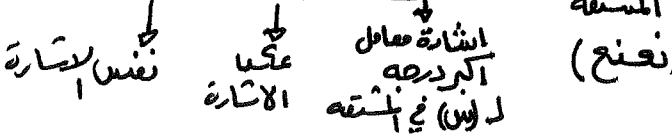 المشتقه
نعنع)
اشارة معامل
اكبر درجه
لـ (س) في المشتقه
عكس
الاشارة
نفس الاشارة